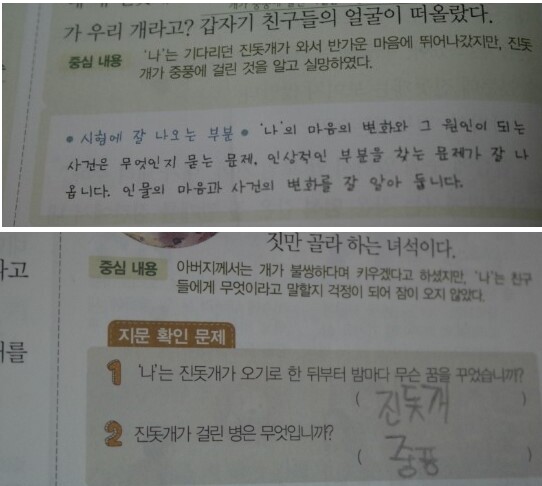 가 우리 개라고? 갑자기 친구들의 얼굴이 떠올랐다.
중심 내용 '나'는 기다리던 진돗개가 와서 반가운 마음에 뛰어나갔지만, 진돗
개가 중풍에 걸린 것을 알고 실망하였다.
• 시험에 잘 나오는 부분 • '나'의 마음의 변화와 그 원인이 되는
사건은 무엇인지 묻는 문제, 인상적인 부분을 찾는 문제가 잘 나
옵니다. 인물의 마음과 사건의 변화를 잘 알아 둡니다.
짓만 골라 하는 녀석이다.
라고
중심 내용 아버지께서는 개가 불쌍하다며 키우겠다고 하셨지만, '나'는 친구
들에게 무엇이라고 말할지 걱정이 되어 잠이 오지 않았다.
지문 확인 문제
를
1 '나'는 진돗개가 오기로 한 뒤부터 밤마다 무슨 꿈을 꾸었습니까?
( 진돗개 )
2 진돗개가 걸린 병은 무엇입니까?
( 중풍 )